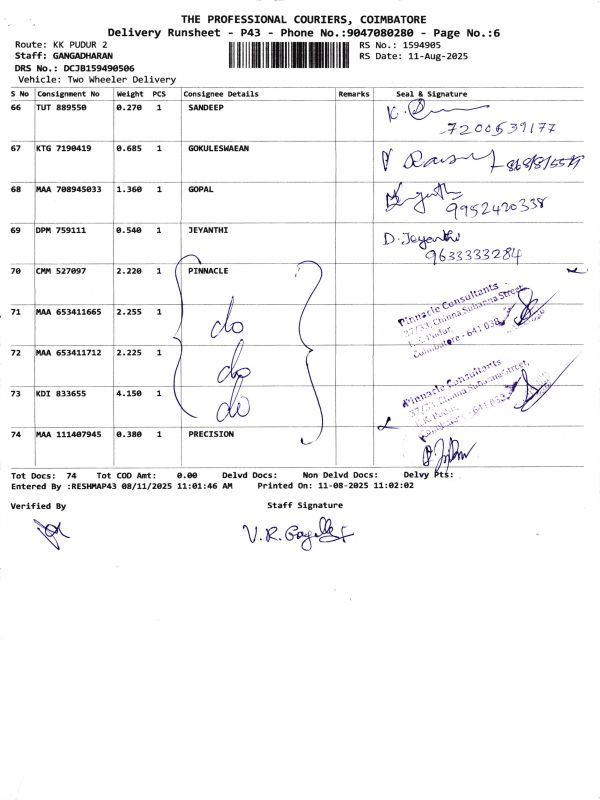 THE PROFESSIONAL COURIERS, COIMBATORE
Delivery Runsheet - P43 - Phone No.:9047080280 - Page No.:6
Route: KK PUDUR 2 RS No.: 1594905
Staff: GANGADHARAN RS Date: 11-Aug-2025
DRS No.: DCJB159490506
Vehicle: Two Wheeler Delivery
S No Consignment No Weight PCS Consignee Details Remarks Seal & Signature
66 TUT 889550 0.270 1 SANDEEP
7200539177
67 KTG 7190419 0.685 1 GOKULESWAEAN
68 MAA 708945033 1.360 1 GOPAL
9952420338
69 DPM 759111 0.540 1 JEYANTHI D. Jeyanthi
9633333284
70 CMM 527097 2.220 1 PINNACLE
Pinnacle Consultants
27/33, Chinna Subanna Street,
K.K. Pudur,
Coimbatore - 641 038
71 MAA 653411665 2.255 1 do
72 MAA 653411712 2.225 1 do
Pinnacle Consultants
27/33, Chinna Subanna Street,
K.K. Pudur,
Coimbatore - 641 038
73 KDI 833655 4.150 1 do
74 MAA 111407945 0.380 1 PRECISION
Tot Docs: 74 Tot COD Amt: 0.00 Delvd Docs: Non Delvd Docs: Delvy Pts:
Entered By :RESHMAP43 08/11/2025 11:01:46 AM Printed On: 11-08-2025 11:02:02
Verified By Staff Signature